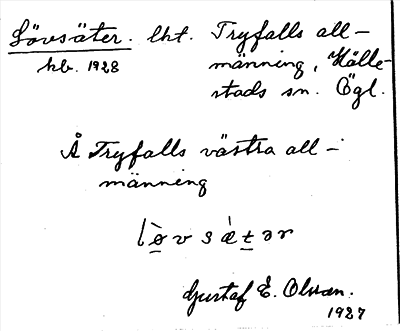 Lövsäter. lht. Tryfalls all-
hb. 1928 männing, Hälle-
stads sn. Ögl.
Å Tryfalls västra all-
männing
lø̀vsæ̀tər
Gustaf E. Olsson.
1927